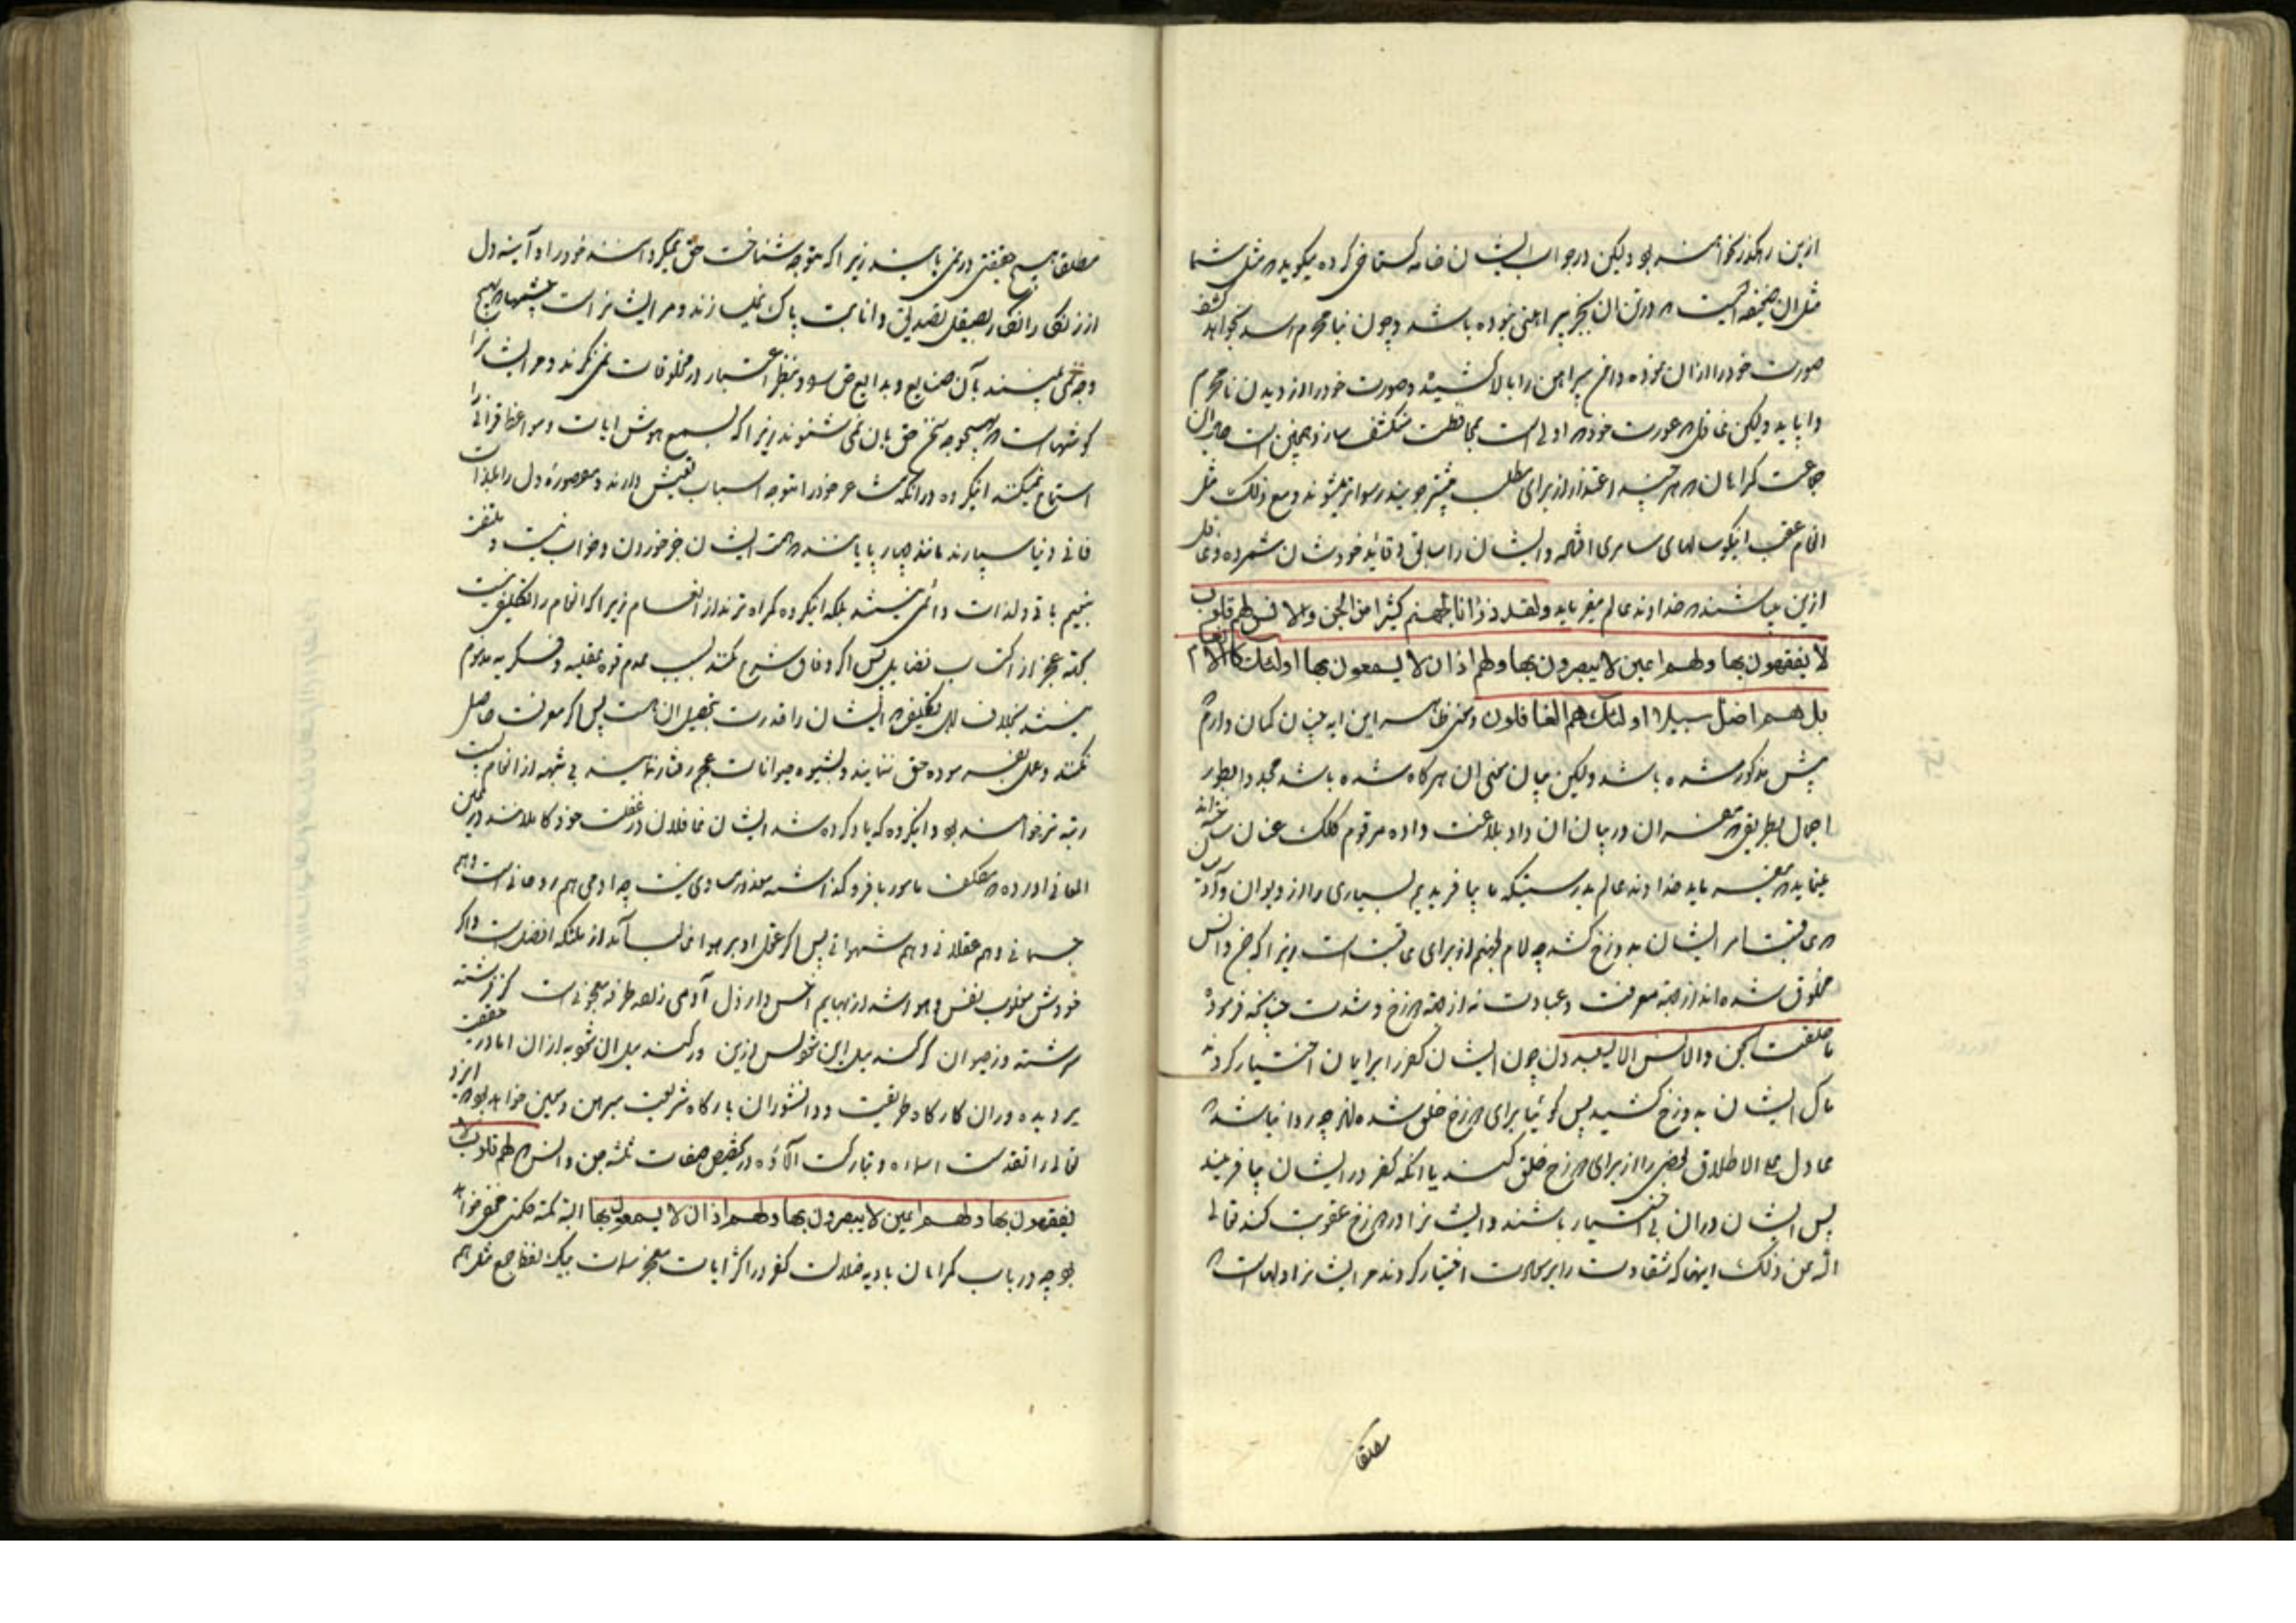 ازین رهگذر نخواهند بود ولیکن در جواب ایشان خامه گستاخی کرده میگوید که مثل شما
مثل آن ضعیفه ایست که در تن آن بجز پیراهنی نبوده باشد و چون نامحرم رسد بخواهد کشف
صورت خود را از آن نموده دامن پیراهن را بالا کشیده صورت خود را از دیدن نامحرم
وا پاید ولیکن غافل که عورت خود که اولی است بمحافظت منکشف سازد و همچنین است
جماعت گمراهان که هر چند اعتذار از برای مطلب بیشتر جویند رسواتر میشوند و مع ذلک مثل
انعام عقب اینگوساله‌های سامری افتاده و ایشان را سابق و قائد خودشان شمرده و غافل
ازین میباشند که خداوند عالم میفرماید ولقد ذرأنا لجهنم کثیرا من الجن والانس لهم قلوب
لا یفقهون بها ولهم اعین لا یبصرون بها ولهم اذان لا یسمعون بها اولئک کالانعام
بل هم اضل سبیلا اولئک هم الغافلون و معنی ظاهر این ایه چنان گمان دارم که
پیش مذکور شده باشد ولیکن بیان معنی آن هرگاه شده باشد مجددا بطور
اجمال بطریق که مفسران در بیان آن داد بلاغت داده مرقوم کلک عنان
مینماید که میفرماید خداوند عالم بدرستیکه ما بیافریدیم بسیاری را از دیوان و آدمیان
که عاقبت امر ایشان به دوزخ کشد چه لام لجهنم از برای عاقبت است زیرا که جن و انس
مخلوق شده‌اند از جهة معرفت و عبادت نه از جهة دوزخ و شدت چنانچه فرموده
ما خلقت الجن والانس الا لیعبدون چون ایشان کفر را بر ایمان اختیار کردند
مآل ایشان به دوزخ کشید پس گوئیا برای دوزخ خلق شده‌اند چه روا نباشد که
عادل علی الاطلاق بعضی را از برای دوزخ خلق کند یا آنکه کفر در ایشان بیافریند
پس ایشان در آن بی اختیار باشند و ایشانرا در دوزخ عقوبت کند تعالی
الله عن ذلک اینها که شقاوت را بر سعادت اختیار کردند مر ایشانرا دلهاست که
مطلقا
مطلقا هیچ حقیقتی در نمی یابند زیرا که متوجه شناخت حق نمیگردانند خود را و آینه دل
از زنگ را بصیقل تصدیق و انابت پاک نمیسازند و مر ایشانراست چشمها که بهیچ
وجه نمی بینند بآن صنایع و بدایع حق و بنظر اعتبار در مخلوقات نمی نگرند و مر ایشانرا
گوشهاست که بهیچوجه سخن حق بآن نمی شنوند زیرا که بسمع هوش ایات و مواعظ قرآنی را
استماع نمیکنند اینگروه در آنکه مشاعر خود را متوجه اسباب تعیش دارند و معموره دل را بلذات
فانی دنیا سپارند مانند چهارپایانند که همت ایشان جز خوردن و خواب نیست و ملتفت
بنعیم باقی و لذات دائمی نیستند بلکه اینگروه گمراه‌ترند از انعام زیرا که انعام را تکلیف نیست
بجهة عجز از اکتساب فضایل پس اگر وفاق شرع نکنند بسبب عدم قوه عقلیه و فکریه مذموم
نیستند بخلاف اهل تکلیف که ایشان را قدرت تحصیل آن هست پس اگر معرفت حاصل
نکنند و عمل بفرموده حق ننمایند و بشیوه حیوانات عجم رفتار نمایند بی شبهه از انعام پست
رتبه‌تر خواهند بود اینگروه که یاد کرده شد ایشان غافلان در غفلت خود کاملانند در
المعانی آورده که مکلف مامور با فرو گذاشته معذور مساوی نیست چه ادمی هم روحانی است و هم
جسمانی و هم عقلانی و هم شهوانی پس اگر عقل او بر هوا غالب آید از ملئکه افضل است و اگر
خودش مغلوب نفس و هوا شد از بهایم اخس و ارذل آدمی زاده طرفه معجونی است کز فرشته
سرشته و ز حیوان گر کند میل این شود پس ازین ور کند میل آن شود به از آن اما در حقیقت
بر دیده وران کارگاه طریقت و دانشوران بارگاه شریعت مبرهن و مبین خواهد بود که ایزد
تعالی را تقدست اسماءه و تبارکت آلاؤه در تخصیص صفات ثلثه جن و انس که لهم قلوب لا
یفقهون بها ولهم اعین لا یبصرون بها ولهم اذان لا یسمعون بها البته نکته حکمتی مخفی خواهد
بود چه در باب گمراهان بادیه ضلالت کفر در اکثر ایات معجز سمات بیک لفظ جمع مثل هم